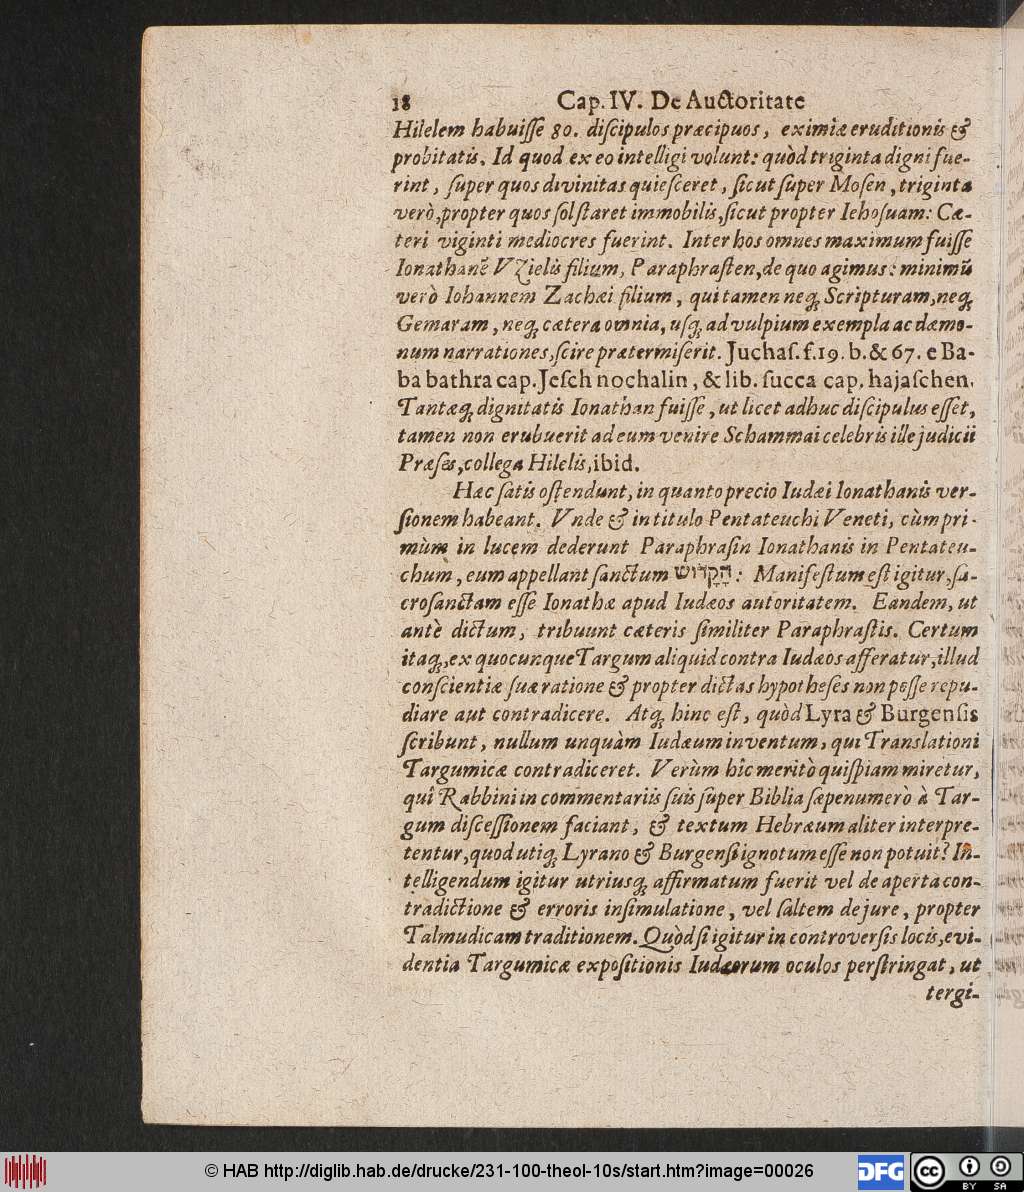 18 Cap. IV. De Auctoritate
Hilelem habuiſſe 80. diſcipulos præcipuos, eximiæ eruditionis &
probitatis. Id quod ex eo intelligi volunt: quòd triginta digni fue-
rint, ſuper quos divinitas quieſceret, ſicut ſuper Moſen, triginta
verò, propter quos ſol ſtaret immobilis, ſicut propter Iehoſuam: Cæ-
teri viginti mediocres fuerint. Inter hos omnes maximum fuiſſe
Ionathanẽ VZielis filium, Paraphraſten, de quo agimus: minimũ
verò Iohannem Zachæi filium, qui tamen neq; Scripturam, neq;
Gemaram, neq; cætera omnia, uſq; ad vulpium exempla ac dæmo-
num narrationes, ſcire prætermiſerit. Juchaſ. f. 19. b. & 67. e Ba-
ba bathra cap. Jeſch nochalin, & lib. ſucca cap. hajaſchen.
Tantæq; dignitatis Ionathan fuiſſe, ut licet adhuc diſcipulus eſſet,
tamen non erubuerit ad eum venire Schammai celebris ille judicii
Præſes, collega Hilelis, ibid.
Hæc ſatis oſtendunt, in quanto precio Iudæi Ionathanis ver-
ſionem habeant. Vnde & in titulo Pentateuchi Veneti, cùm pri-
mùm in lucem dederunt Paraphraſin Ionathanis in Pentateu-
chum, eum appellant ſanctum הָקָדוֹש: Manifeſtum eſt igitur, ſa-
croſanctam eſſe Ionathæ apud Iudæos autoritatem. Eandem, ut
antè dictum, tribuunt cæteris ſimiliter Paraphraſtis. Certum
itaq;, ex quocunque Targum aliquid contra Iudæos afferatur, illud
conſcientiæ ſuæ ratione & propter dictas hypotheſes non poſſe repu-
diare aut contradicere. Atq; hinc eſt, quòd Lyra & Burgenſis
ſcribunt, nullum unquàm Iudæum inventum, qui Translationi
Targumicæ contradiceret. Verùm hîc meritò quiſpiam miretur,
quî Rabbini in commentariis ſuis ſuper Biblia ſæpenumerò à Tar-
gum diſceſſionem faciant, & textum Hebræum aliter interpre-
tentur, quod utiq; Lyrano & Burgenſi ignotum eſſe non potuit? In-
telligendum igitur utriusq; affirmatum fuerit vel de aperta con-
tradictione & erroris inſimulatione, vel ſaltem de jure, propter
Talmudicam traditionem. Quòd ſi igitur in controverſis locis, evi-
dentia Targumicæ expoſitionis Iudæorum oculos perſtringat, ut
tergi-
© HAB http://diglib.hab.de/drucke/231-100-theol-10s/start.htm?image=00026
DFG
cc BY SA